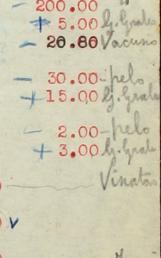 - 200.00
+ 5.00 G. Grales
- 20.80 Vacuno
- 30.00 - pelo
+ 15.00 G. Grales
- 2.00 - pelo
+ 3.00 G. Grals
Vinatas
v